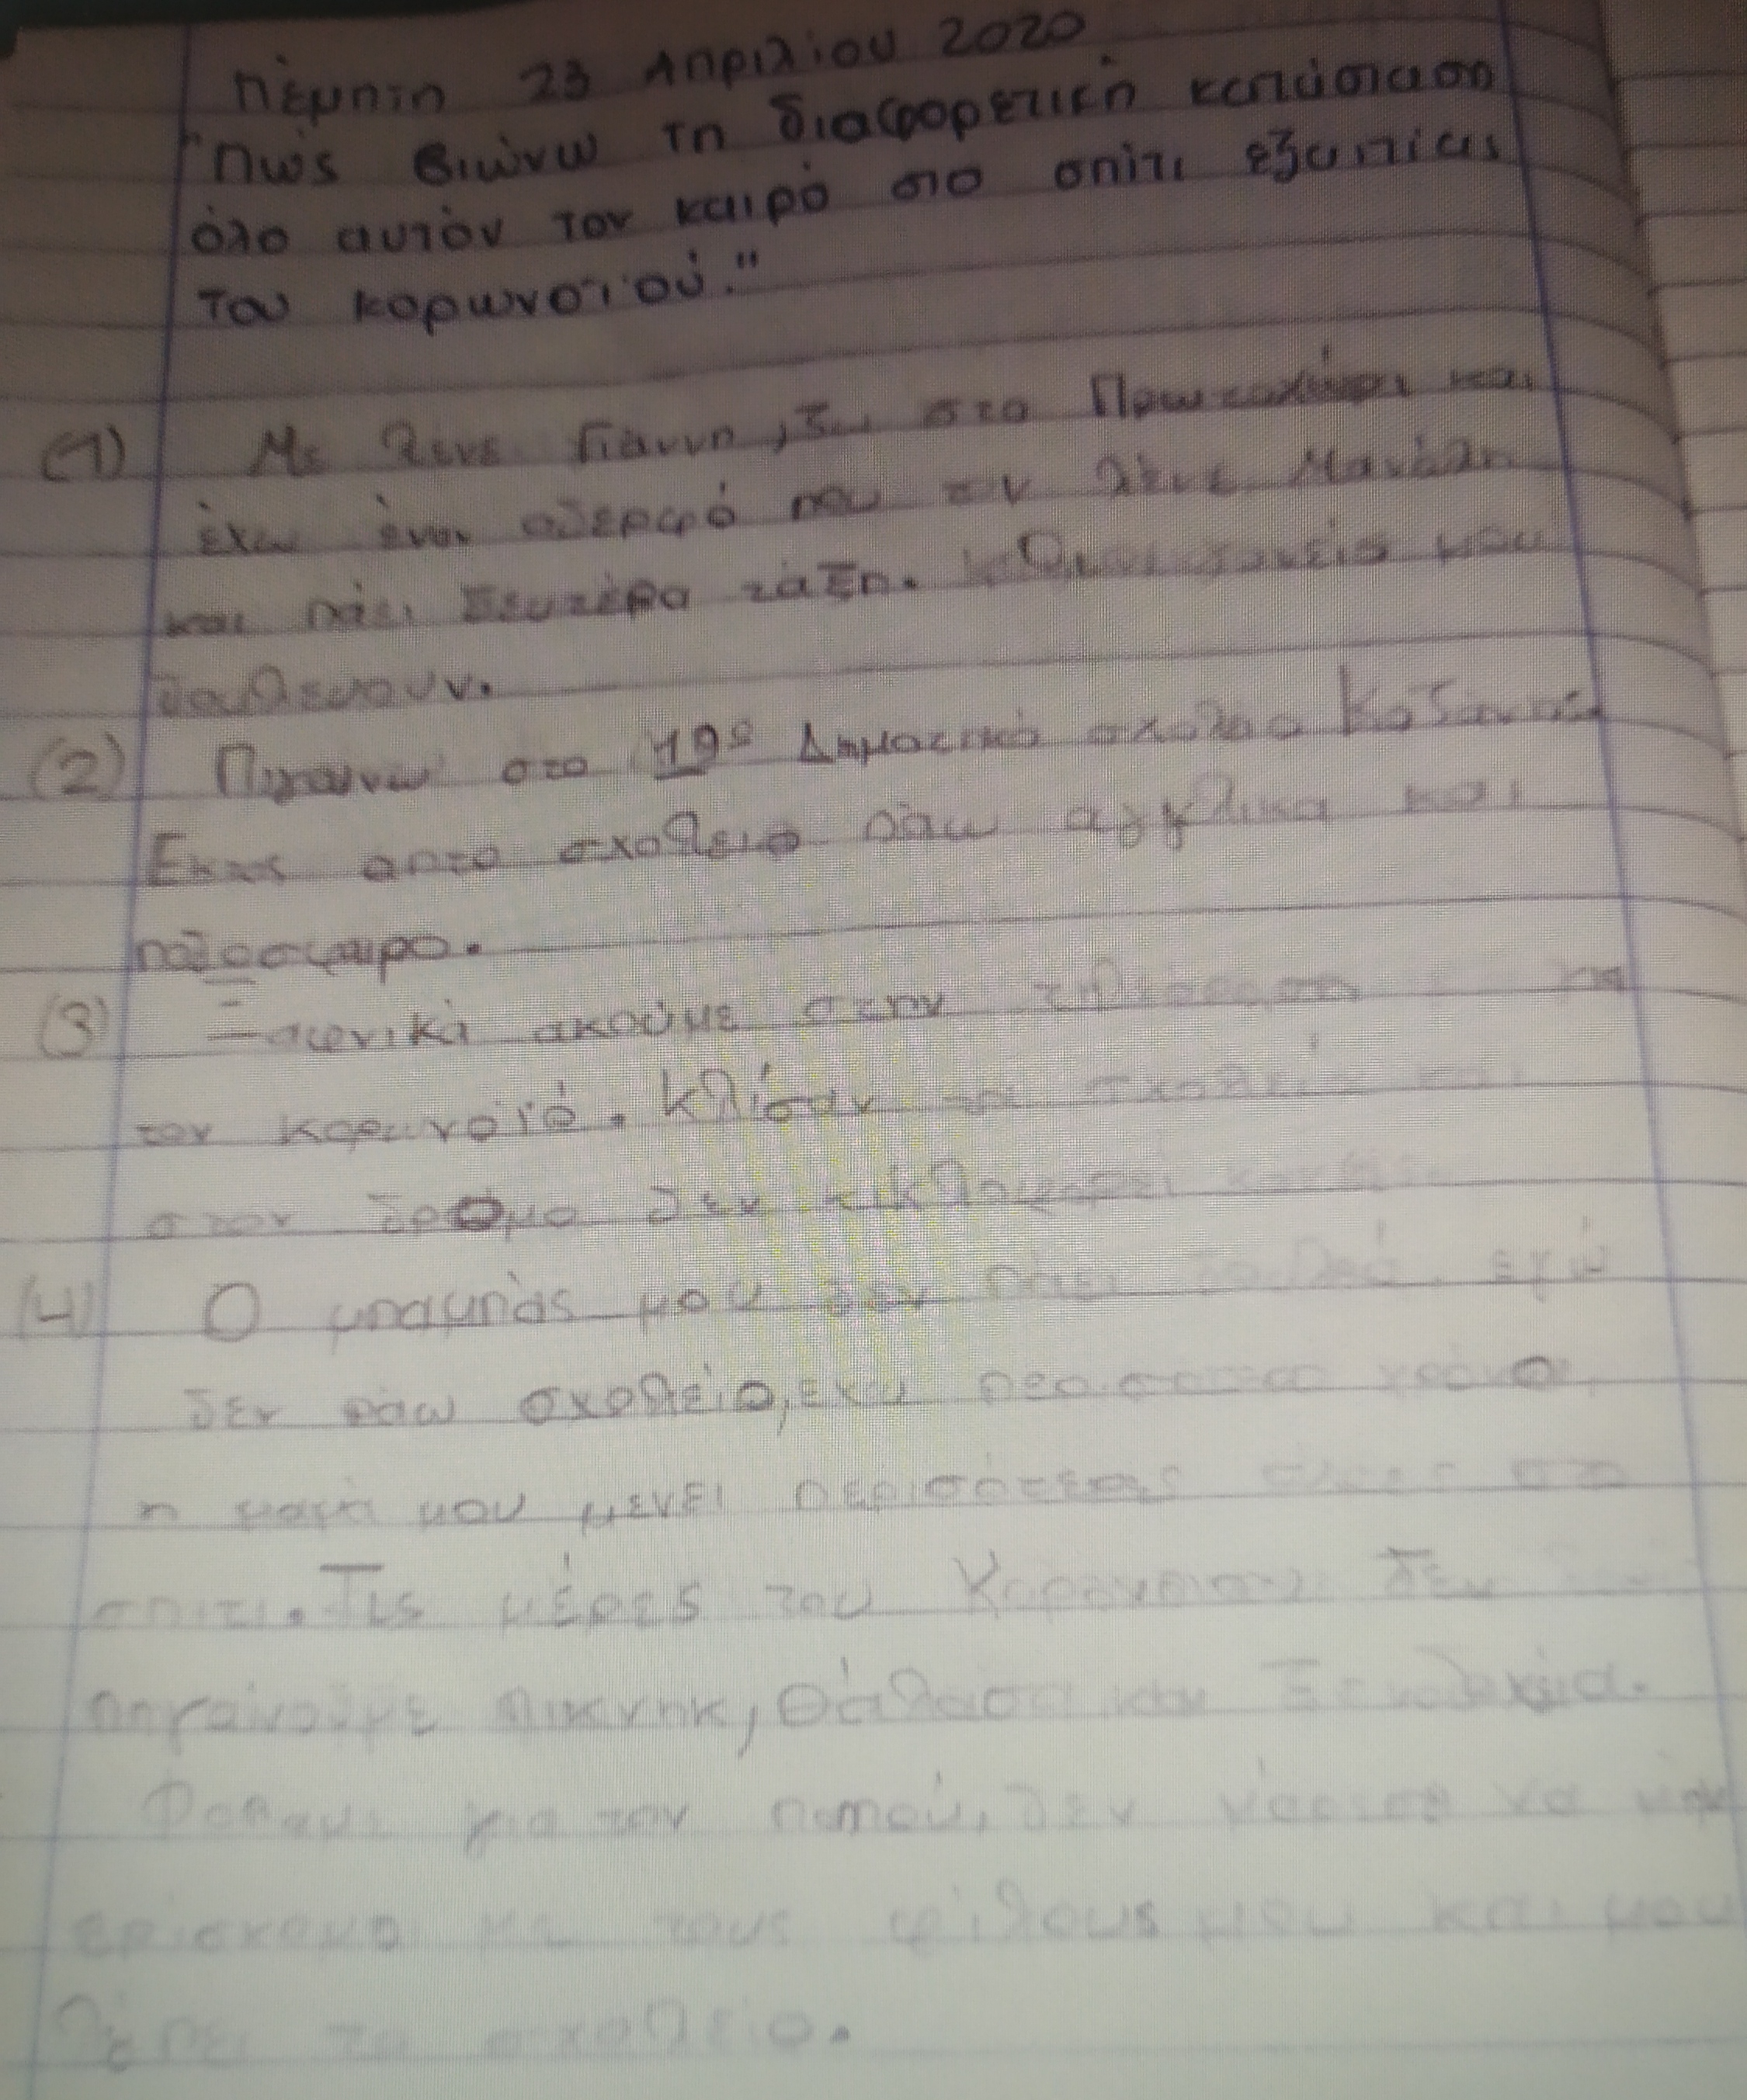 Πέμπτη 23 Απριλίου 2020
"Πώς βιώνω τη διαφορετική κατάσταση
όλο αυτόν τον καιρό στο σπίτι εξαιτίας
του κορωνοϊού."
(1) Με λένε Γιάννη, ζω στο Πρωτοχώρι και
έχω έναν αδερφό που τον λένε Μανώλη
και πάει δευτέρα τάξη. Οι γονείς μου
δουλευουν.
(2) Πηγαινω στο 19º Δημοτικό σχολειο Κοζανης
Εκτος απτο σχολειο πάω αγγλικα και
ποδοσφαιρο.
(3) Ξαφνικά ακούμε στην τηλεόραση για
τον κορωνοϊό. Κλίσαν τα σχολεία και
στον δρομο δεν κικλοφορεί κανείς.
(4) Ο μπαμπάς μου δεν πάει δουλειά, εγώ
δεν πάω σχολείο, εχω χρόνο,
η μαμά μου μενει περισότερες ώρες στο
σπιτι. Τις μέρες του Κορονοιου δεν
πηγαίνουμε πικνηκ, θάλασα και ξενοδοχεία.
Φοβαμε για τον παπού, δεν να
βρίσκομαι με τους φίλους μου και μου
λείπει το σχολείο.